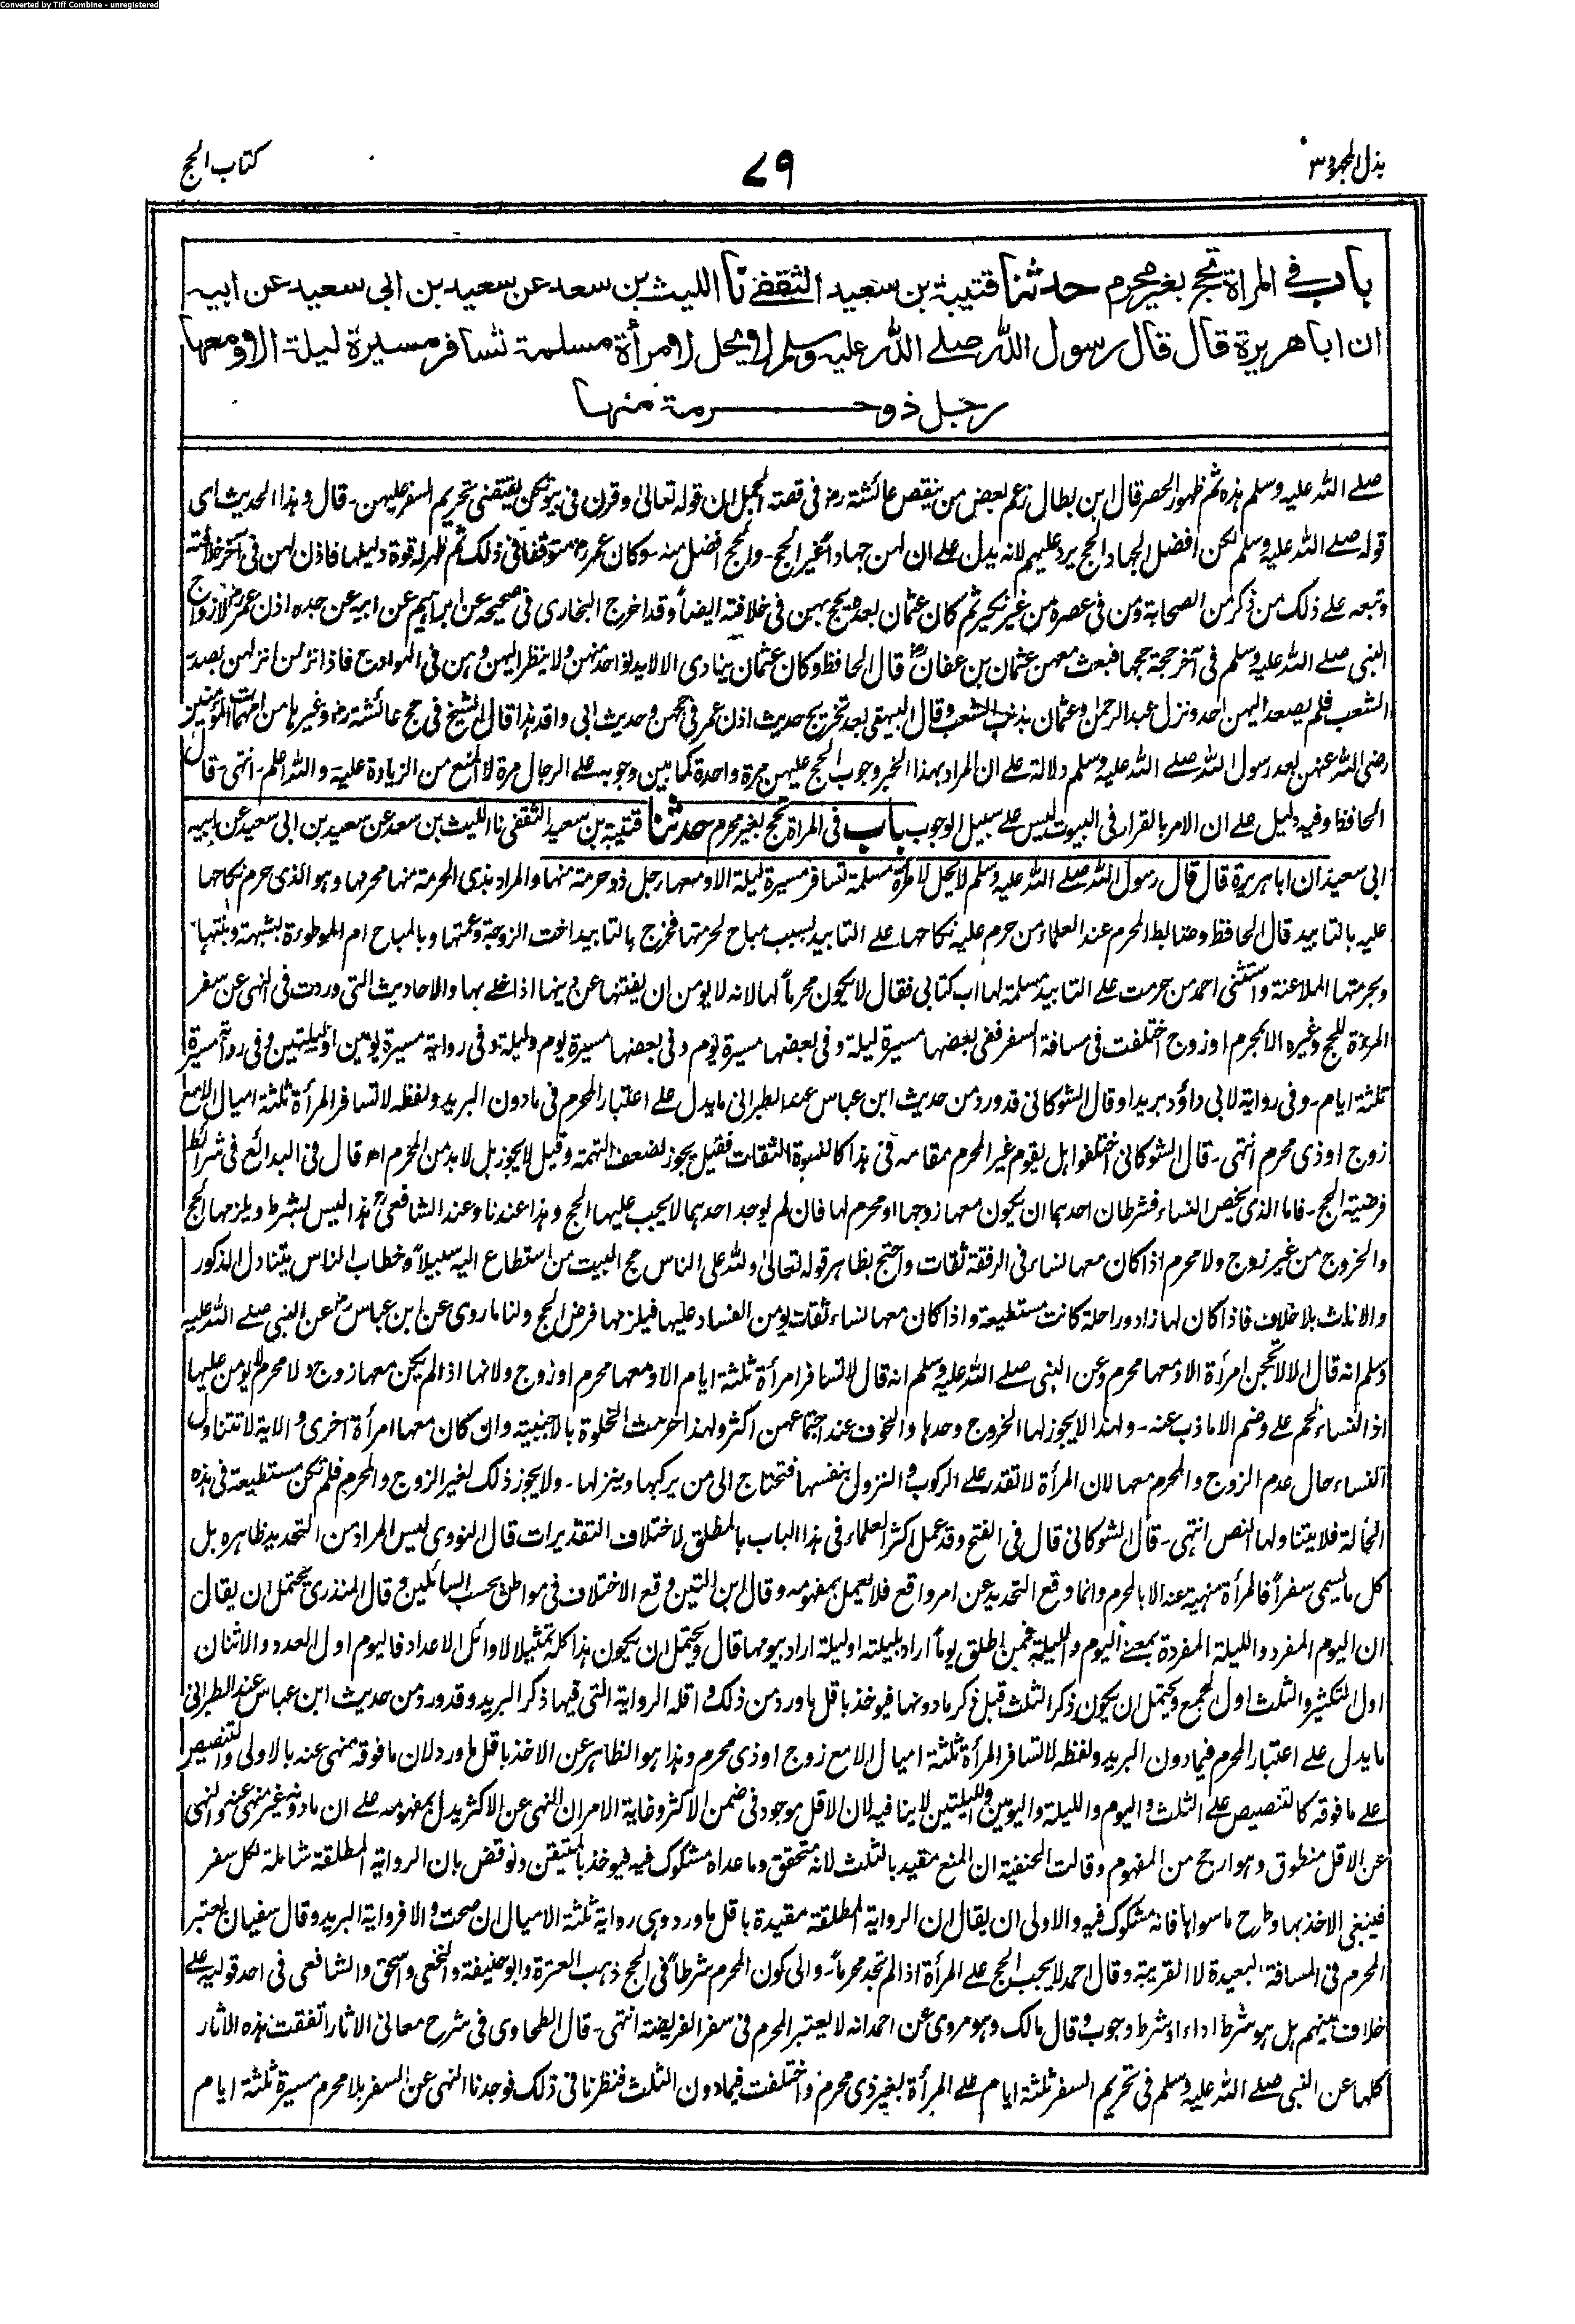 Converted by Tiff Combine - unregistered
بذل المجهود ٣
٧٩
كتاب الحج
باب في المرأة تحج بغير محرم حدثنا قتيبة بن سعيد الثقفي نا الليث بن سعد عن سعيد بن ابي سعيد عن ابيه
ان ابا هريرة قال قال رسول الله صلے الله عليه وسلم لا يحل لامرأة مسلمة تسافر مسيرة ليلة الا ومعها
رجل ذو حرمة منها
صلے الله عليه وسلم هذه ثم ظهور الحصر قال ابن بطال زعم بعض من ينقص عائشة رض فى قصة الجمل ان قوله تعالى وقرن فى بيوتكن يقتضى تحريم السفر عليهن - قال وهذا الحديث اى
قوله صلے الله عليه وسلم لكن افضل الجهاد الحج يرد عليهم لانه يدل علے ان لهن جهادا غير الحج - والحج افضل منه - وكان عمر رض متوقفا فى ذلك ثم ظهر له قوة دليلها فاذن لهن فى آخر خلافته
وتبعه علے ذلك من ذكر من الصحابة ومن فى عصره من غير نكير ثم كان عثمان بعده يحج بهن فى خلافته ايضاً وقد اخرج البخارى فى صحيحه عن ابراهيم عن ابيه عن جده اذن عمر رض لازواج
النبى صلے الله عليه وسلم فى آخر حجة حجها فبعث معهن عثمان بن عفان رض قال الحافظ وكان عثمان ينادى الا لا يدنو احد منهن ولا ينظر اليهن وهن فى الهوادج فاذا نزلن انزلهن بصدر
الشعب فلم يصعد اليهن احد ونزل عبد الرحمن وعثمان بذنب الشعب وقال البيهقى بعد تخريج حديث اذن عمر فى حجهن وحديث ابى واقد هذا قال الشيخ فى حج عائشة رض وغيرها من امهات المؤمنين
رضى الله عنهن بعد رسول الله صلے الله عليه وسلم دلالة علے ان المراد بهذا الخبر وجوب الحج عليهن مرة واحدة كما بين وجوبه علے الرجال مرة لا المنع من الزيادة عليه والله اعلم - انتهى - قال
الحافظ وفيه دليل علے ان الامر بالقرار فى البيوت ليس علے سبيل الوجوب باب فى المرأة تحج بغير محرم حدثنا قتيبة بن سعيد الثقفى نا الليث بن سعد عن سعيد بن ابى سعيد عن ابيه
ابى سعيد ان ابا هريرة قال قال رسول الله صلے الله عليه وسلم لا يحل لامرأة مسلمة تسافر مسيرة ليلة الا ومعها رجل ذو حرمة منها والمراد بذى الحرمة منها محرمها وهو الذى حرم نكاحها
عليه بالتابيد قال الحافظ وضابط المحرم عند العلماء من حرم عليه نكاحها علے التابيد بسبب مباح لحرمتها فخرج بالتابيد اخت الزوجة وعمتها وبالمباح ام الموطوءة بشبهة وبنتها
وبحرمتها الملاعنة واستثنى احمد من حرمت علے التابيد مسلمة لها اب كتابى فقال لا يكون محرماً لها لانه لا يومن ان يفتنها عن دينها اذا خلى بها والاحاديث التى وردت فى النهى عن سفر
المرءة للحج وغيره الا بمحرم او زوج اختلفت فى مسافة السفر ففى بعضها مسيرة ليلة وفى بعضها مسيرة يوم وفى بعضها مسيرة يوم وليلة وفى رواية مسيرة يومين او ليلتين وفى رواية مسيرة
ثلثة ايام - وفى رواية لابى داؤد بريدا وقال الشوكانى قد ورد من حديث ابن عباس عند الطبرانى ما يدل علے اعتبار المحرم فى ما دون البريد ولفظه لا تسافر المرأة ثلثة اميال الا مع
زوج او ذى محرم انتهى - قال الشوكانى اختلفوا هل يقوم غير المحرم مقامه فى هذا كالنسوة الثقات فقيل يجوز لضعف التهمة وقيل لا يجوز بل لا بد من المحرم اھ قال فى البدائع فى شرائط
فرضية الحج - فاما الذى يخص النساء فشرطان احدهما ان يكون معها زوجها او محرم لها فان لم يوجد احدهما لا يجب عليها الحج وهذا عندنا وعند الشافعى رح هذا ليس بشرط ويلزمها الحج
والخروج من غير زوج ولا محرم اذا كان معها نساء فى الرفقة ثقات واحتج بظاهر قوله تعالى ولله على الناس حج البيت من استطاع اليه سبيلاً وخطاب الناس يتناول الذكور
والاناث بلا خلاف فاذا كان لها زاد وراحلة كانت مستطيعة واذا كان معها نساء ثقات يومن الفساد عليها فيلزمها فرض الحج ولنا ما روى عن ابن عباس رض عن النبى صلے الله عليه
وسلم انه قال الا لا تحجن امرأة الا ومعها محرم وعن النبى صلے الله عليه وسلم انه قال لا تسافر امرأة ثلثة ايام الا ومعها محرم او زوج ولانها اذا لم يكن معها زوج ولا محرم لا يومن عليها
اذ النساء لحم علے وضم الا ما ذب عنه - ولهذا لا يجوز لها الخروج وحدها والخوف عند اجتماعهن اكثر ولهذا حرمت الخلوة بالاجنبية وان كان معها امرأة اخرى والاية لا تتناول
النساء حال عدم الزوج والمحرم معها لان المرأة لا تقدر علے الركوب والنزول بنفسها فتحتاج الى من يركبها وينزلها - ولا يجوز ذلك لغير الزوج والمحرم فلم تكن مستطيعة فى هذه
الحالة فلا يتناولها النص انتهى - قال الشوكانى قال فى الفتح وقد عمل اكثر العلماء فى هذا الباب بالمطلق لاختلاف التقديرات قال النووى ليس المراد من التحديد ظاهره بل
كل ما يسمى سفراً فالمرأة منهية عنه الا بالمحرم وانما وقع التحديد عن امر واقع فلا يعمل بمفهومه وقال ابن التين وقع الاختلاف فى مواطن بحسب السائلين وقال المنذرى يحتمل ان يقال
ان اليوم المفرد والليلة المفردة بمعنى اليوم والليلة فمن اطلق يوماً اراد بليلته او ليلة اراد بيومها قال ويحتمل ان يكون هذا كله تمثيلا لاوائل الاعداد فاليوم اول العدد والاثنان
اول التكثير والثلث اول الجمع ويحتمل ان يكون ذكر الثلث قبل ذكر ما دونها فيوخذ باقل ما ورد من ذلك واقله الرواية التى فيها ذكر البريد وقد ورد من حديث ابن عباس عند الطبرانى
ما يدل علے اعتبار المحرم فيما دون البريد ولفظه لا تسافر المرأة ثلثة اميال الا مع زوج او ذى محرم وهذا هو الظاهر عن الاخذ باقل ما ورد لان ما فوقه منهى عنه بالاولى والتنصيص
علے ما فوقه كالتنصيص علے الثلث واليوم والليلة واليومين والليلتين لا ينافيه لان الاقل موجود فى ضمن الاكثر وغاية الامر ان النهى عن الاكثر يدل بمفهومه علے ان ما دونه غير منهى عنه والنهى
عن الاقل منطوق وهو ارجح من المفهوم وقالت الحنفية ان المنع مقيد بالثلث لانه متحقق وما عداه مشكوك فيه فيوخذ بالمتيقن ونوقض بان الرواية المطلقة شاملة لكل سفر
فينبغى الاخذ بها وطرح ما سواها فانه مشكوك فيه والاولى ان يقال ان الرواية المطلقة مقيدة باقل ما ورد وهى رواية ثلثة الاميال ان صحت والا فرواية البريد وقال سفيان يعتبر
المحرم فى المسافة البعيدة لا القريبة وقال احمد لا يجب الحج علے المرأة اذا لم تجد محرماً - والى كون المحرم شرطاً فى الحج ذهب العترة وابو حنيفة والنخعى واسحق والشافعى فى احد قوليه علے
خلاف بينهم هل هو شرط اداء او شرط وجوب وقال مالك وهو مروى عن احمد انه لا يعتبر المحرم فى سفر الفريضة انتهى - قال الطحاوى فى شرح معانى الاثار اتفقت هذه الاثار
كلها عن النبى صلے الله عليه وسلم فى تحريم السفر ثلثة ايام علے المرأة بغير ذى محرم واختلفت فيما دون الثلث فنظرنا فى ذلك فوجدنا النهى عن السفر بلا محرم مسيرة ثلثة ايام